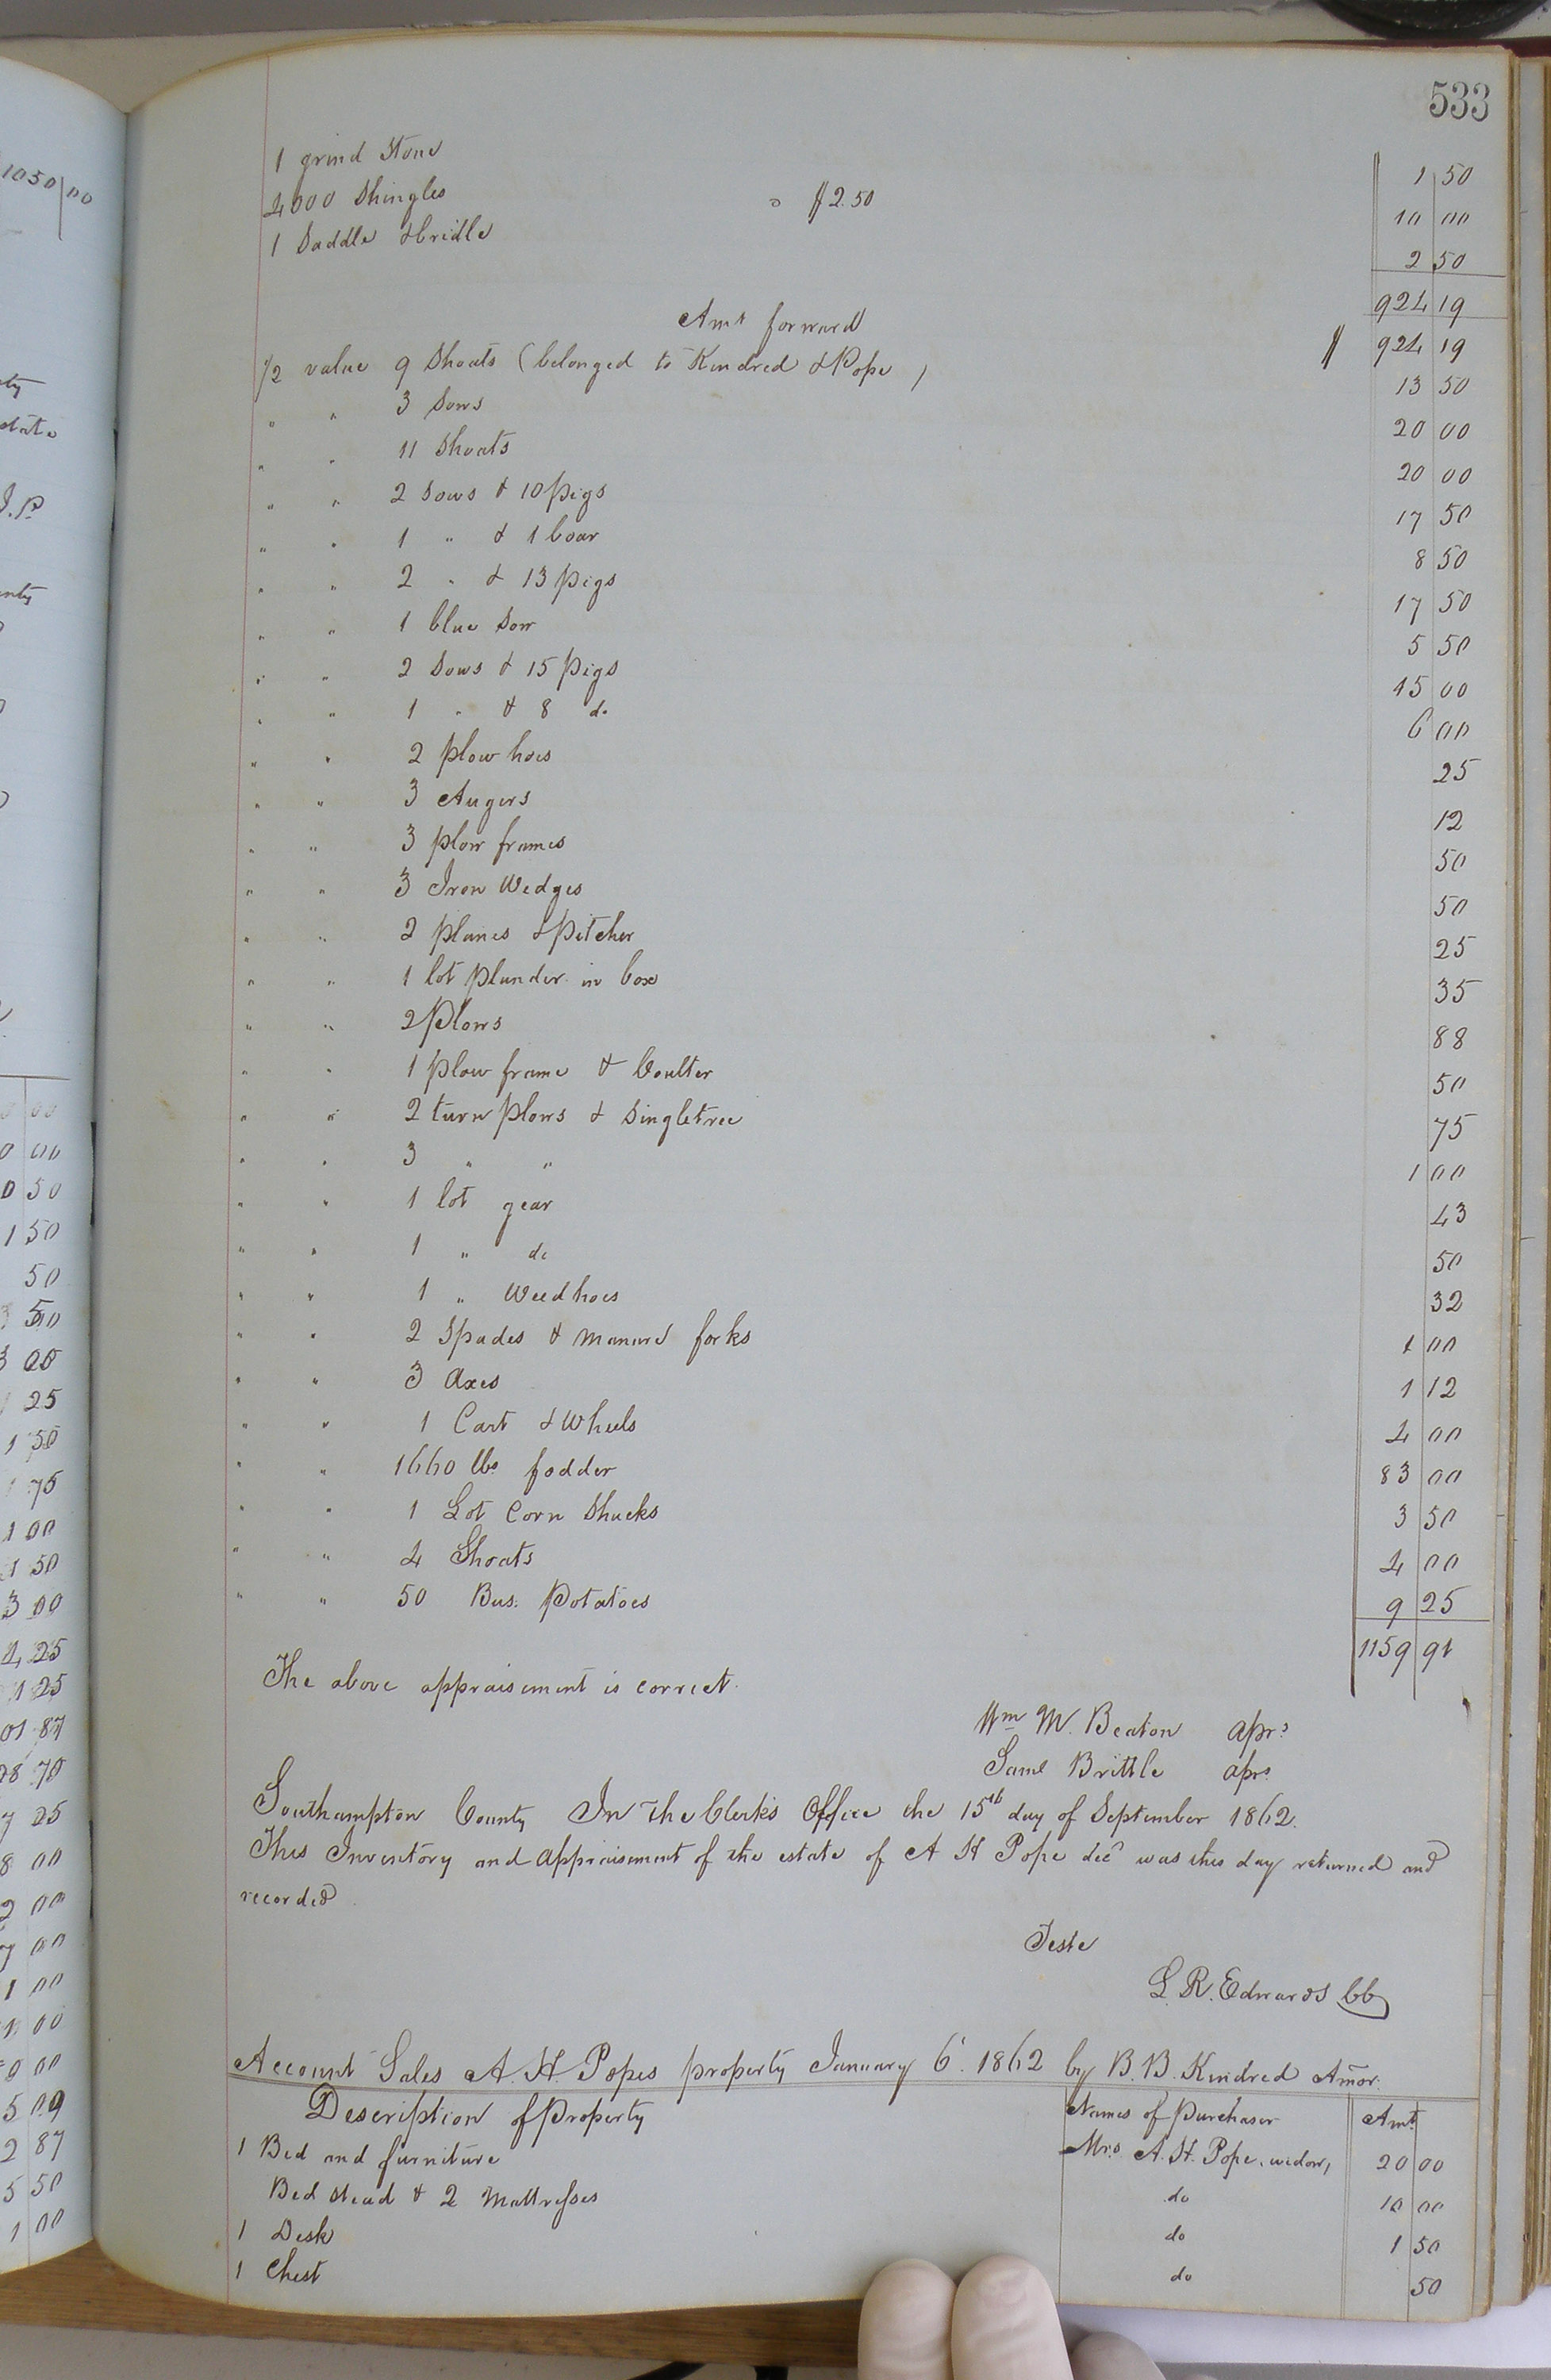 533
1 grind Stone 1 50
4000 Shingles " $2.50 10 00
1 Saddle & bridle 2 50
924 19
Amt forward $ 924 19
1/2 value 9 Shoats (belonged to Kindred & Pope) 13 50
" " 3 Sows 20 00
" " 11 Shoats 20 00
" " 2 Sows & 10 pigs 17 50
" " 1 " & 1 boar 8 50
" " 2 " & 13 pigs 17 50
" " 1 blue Sow 5 50
" " 2 Sows & 15 pigs 15 00
" " 1 " & 8 do 6 00
" " 2 plow hoes 25
" " 3 Augers 12
" " 3 plow frames 50
" " 3 Iron Wedges 50
" " 2 planes & Pitcher 25
" " 1 lot plunder in box 35
" " 2 Plows 88
" " 1 plow frame & Coulter 50
" " 2 turn plows & Singletree 75
" " 3 " " 1 00
" " 1 lot gear 43
" " 1 " do 50
" " 1 " Weedhoes 32
" " 2 Spades & manure forks 1 00
" " 3 Axes 1 12
" " 1 Cart & Wheels 4 00
" " 1660 lbs fodder 83 00
" " 1 Lot Corn Shucks 3 50
" " 4 Shoats 4 00
" " 50 Bus. Potatoes 9 25
1159 91
The above appraisement is correct.
Wm M. Beaton aprs
Saml Brittle aprs
Southampton County In the Clerks Office the 15th day of September 1862.
This Inventory and appraisement of the estate of A H Pope decd was this day returned and
recorded.
Teste
L. R. Edwards CC
Account Sales A. H. Popes property January 6. 1862 by B. B. Kindred Amor.
Description of Property Names of Purchaser Amt
1 Bed and furniture Mrs. A. H. Pope, widow, 20 00
Bed Stead & 2 Mattresses do 10 00
1 Desk do 1 50
1 Chest do 50